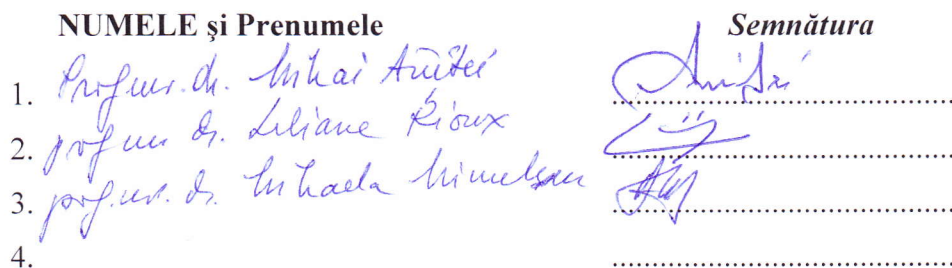 NUMELE și Prenumele Semnătura
1. Prof.univ.dr. Mihai Aniței ....................
2. prof univ dr. Liliane Rioux ....................
3. prof.univ. dr. Mihaela ....................
4. ....................